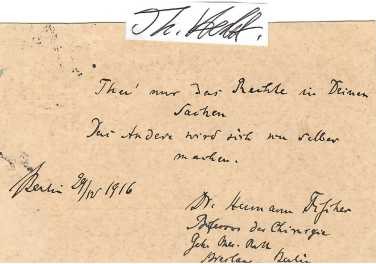 Th.
Thu' nur das Rechte in Deinen
Sachen
Das Andere wird sich von selber
machen.
Berlin 29/IV 1916
Dr. Hermann Fischer
Professor der Chirurgie
Geh. Med. Rath
Breslau Berlin